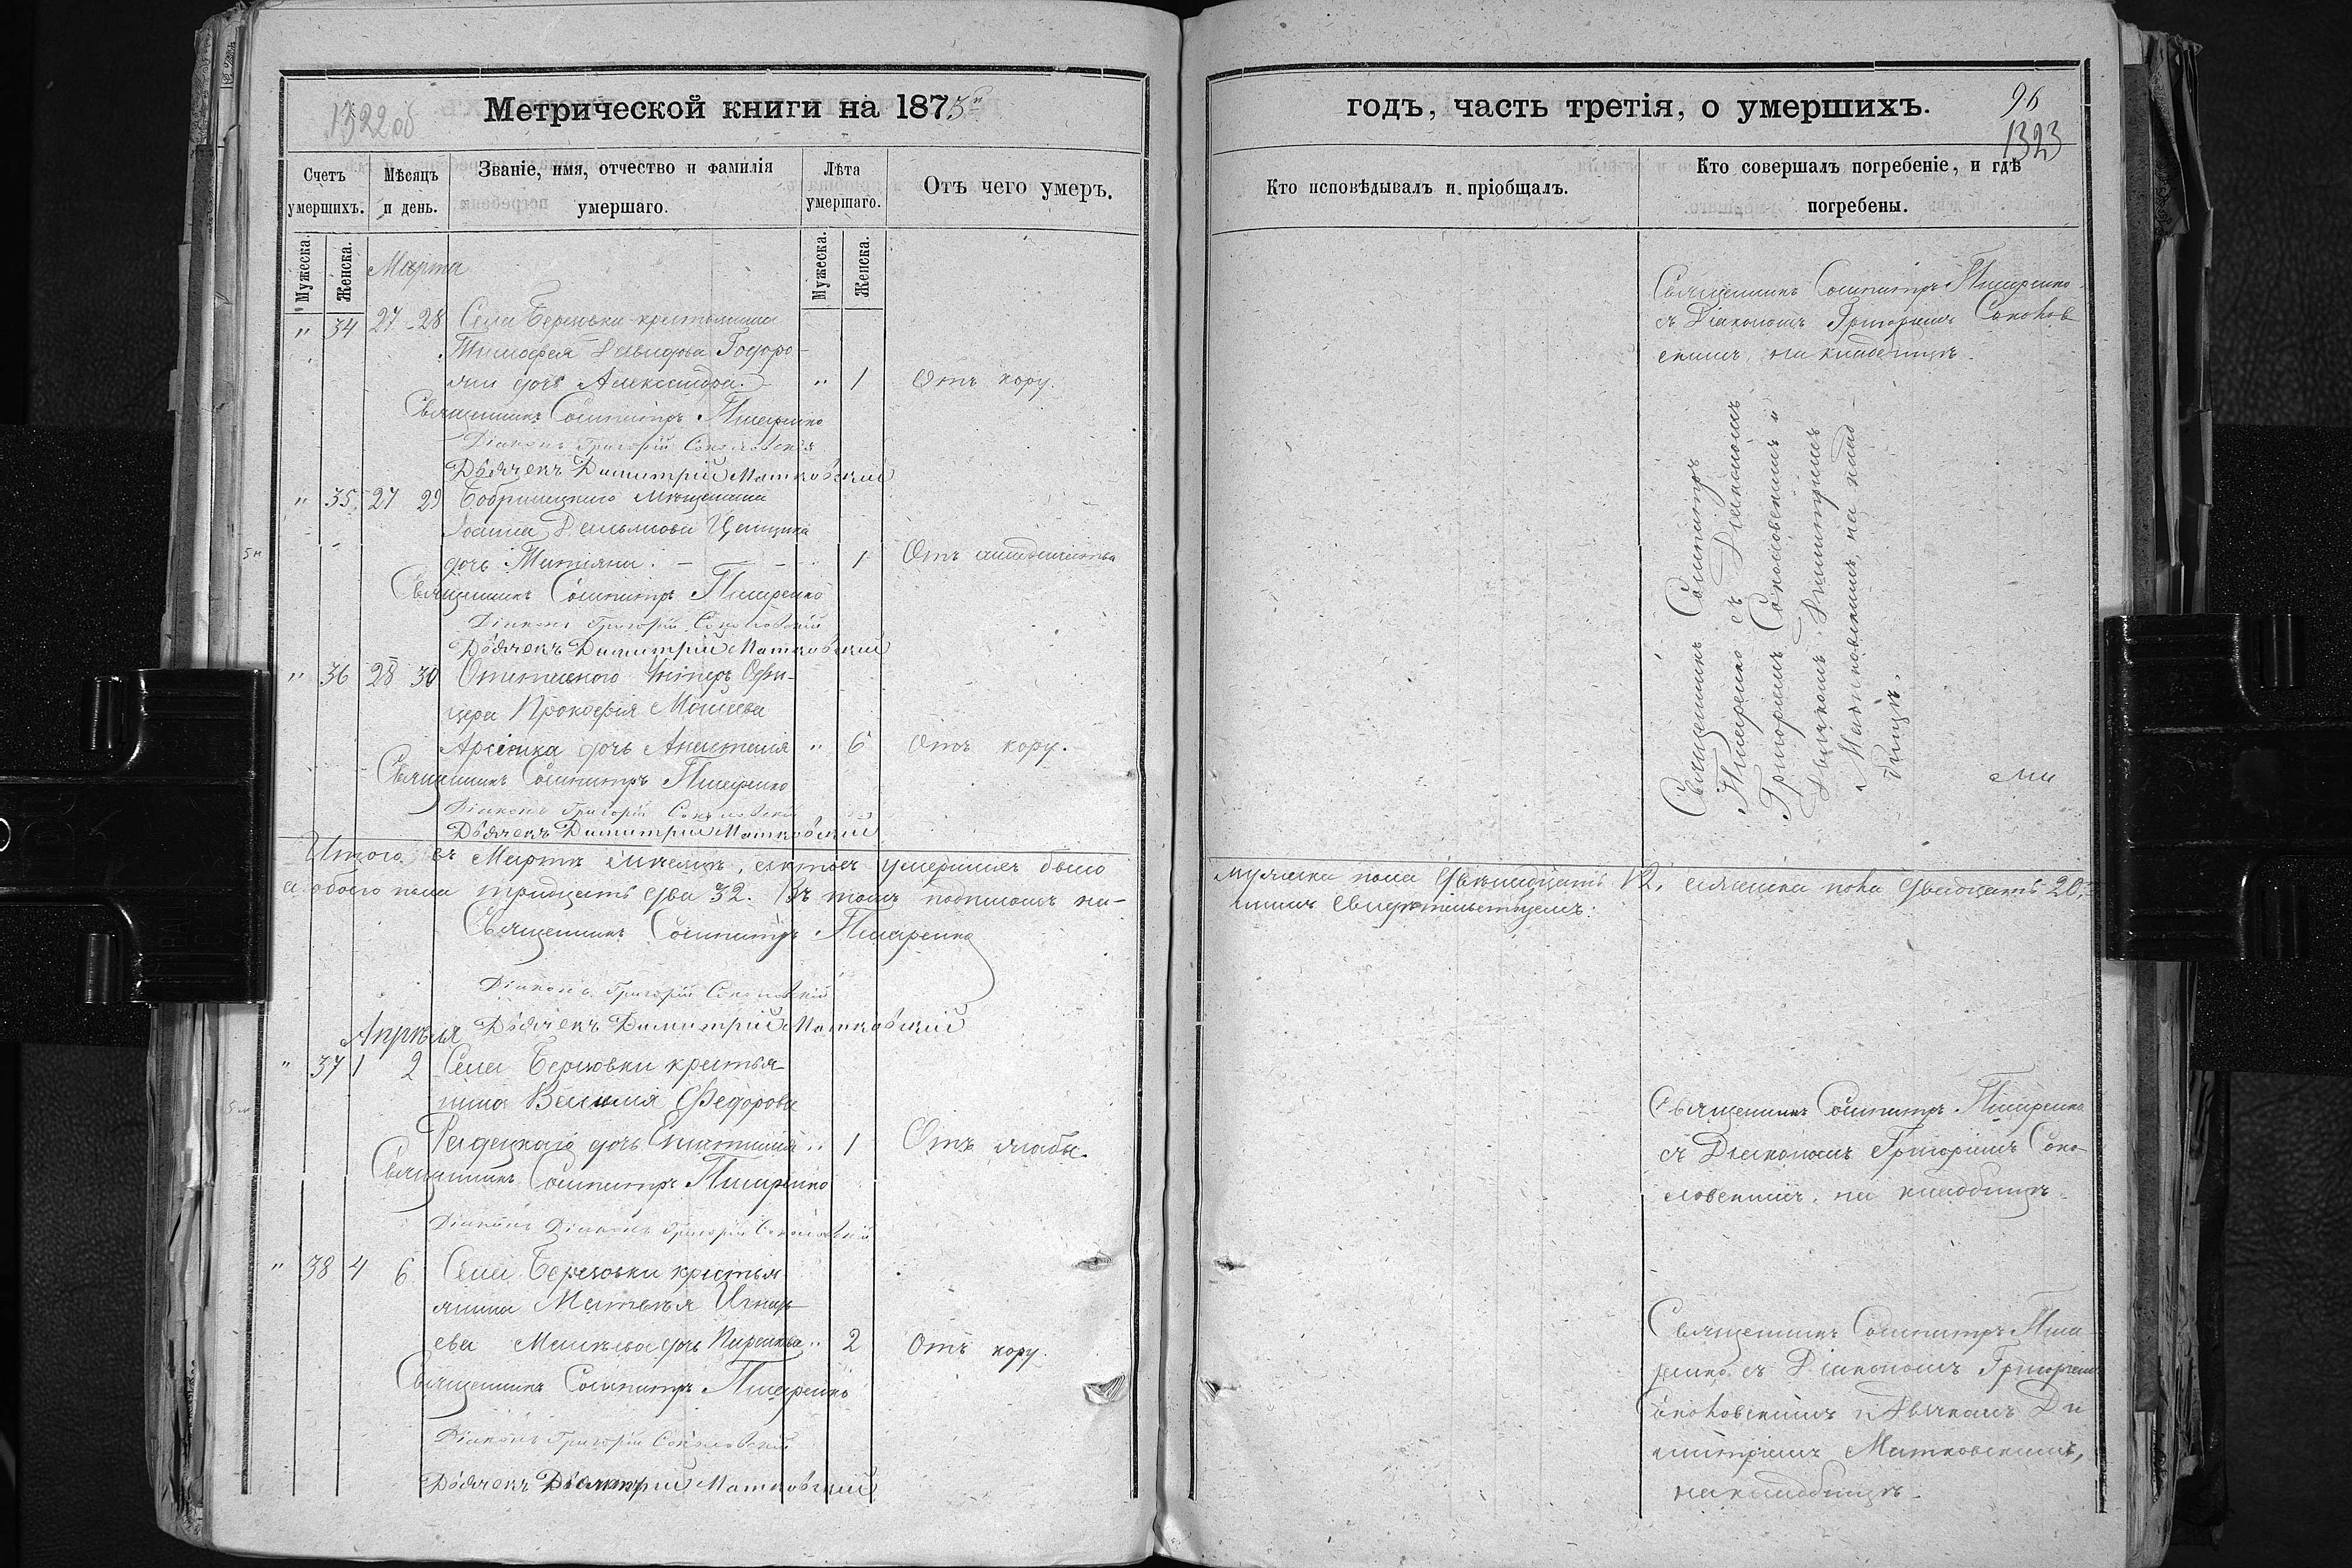 1322об
Метрической книги на 1875й
Счетъ умершихъ.
Мѣсяцъ и день.
Званіе, имя, отчество и фамилія умершаго.
Лѣта умершаго.
Отъ чего умеръ.
Мужеска.
Женска.
Мужеска.
Женска.
Марта
" 34 27 - 28 Села Березовки крестьянина
Тимофея Давидова Годоро-
жи дочь Александра. " 1 Отъ кору.
Священникъ Сосипатръ Писаренко
Діаконъ Григорій Соколовскій
Дьячекъ Димитрій Матковскій
" 35 27 29 Бобринецкаго мѣщанина
Іоанна
дочь Татіана. 1 Отъ
Священникъ Сосипатръ Писаренко
Діаконъ Григорій Соколовскій
Дьячекъ Димитрій Матковскій
" 36 28 30 Отставного Унтеръ Офи-
цера Прокофія Моисеева
дочь Анастасія " 6 Отъ кору.
Священникъ Сосипатръ Писаренко
Діаконъ Григорій Соколовскій
Дьячекъ Димитрій Матковскій
Итого въ Мартѣ мѣсяцѣ, умершихъ было
а обоего пола тридцать два 32. Въ томъ подписомъ на-
Священникъ Сосипатръ Писаренко
Діаконъ Григорій Соколовскій
Дьячекъ Димитрій Матковскій
Апрѣля
" 37 1 2 Села Березовки крестья-
нина Василия Федорова
дочь " 1 Отъ жабы.
Священникъ Сосипатръ Писаренко
Діаконъ Діаконъ Григорій Соколовскій
" 38 4 6 Села Березовки крестья-
нина Матвѣя
ева дочь " 2 Отъ кору.
Священникъ Сосипатръ Писаренко
Діаконъ Григорій Соколовскій
Дьячекъ Димитрій Матковскій
годъ, часть третія, о умершихъ.
96
1323
Кто исповѣдывалъ и пріобщалъ.
Кто совершалъ погребеніе, и гдѣ погребены.
Священникъ Сосипатръ Писаренко
съ Діакономъ Григоріемъ Соколов
скимъ, на кладбищѣ.
Священникъ Сосипатръ
Писаренко съ Діакономъ
Григоріемъ Соколовскимъ и
Дьячкомъ Димитріемъ
Матковскимъ, на клад-
бищѣ.
мужеска пола двѣнадцать 12, женска пола двадцать 20,
шимъ свидѣтельствуемъ:
Священникъ Сосипатръ Писаренко
съ Діакономъ Григоріемъ Соко-
ловскимъ, на кладбищѣ.
Священникъ Сосипатръ Писа
ренко съ Діакономъ Григоріемъ
Соколовскимъ и Дьячкомъ Ди
митріемъ Матковскимъ,
на кладбищѣ.